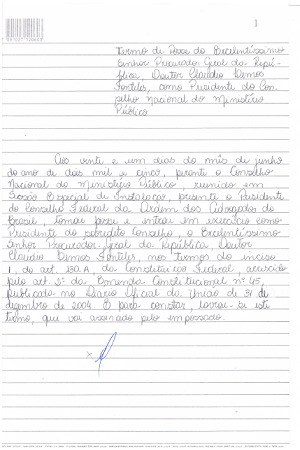 1
Termo de Posse do Excelentíssimo
Senhor Procurador Geral da Repú-
blica, Doutor Claudio Lemos
Fonteles, como Presidente do Con-
selho Nacional do Ministério
Público
Aos vinte e um dias do mês de junho
do ano de dois mil e cinco, perante o Conselho
Nacional do Ministério Público, reunido em
Sessão Especial de Instalação, presente o Presidente
do Conselho Federal da Ordem dos Advogados do
Brasil, tomou posse e entrou em exercício como
Presidente do sobredito Conselho, o Excelentíssimo
Senhor Procurador-Geral da República, Doutor
Claudio Lemos Fonteles, nos termos do inciso
I, do art. 130.A, da Constituição Federal, acrescido
pelo art. 5º da Emenda Constitucional nº 45,
publicada no Diário Oficial da União de 31 de
dezembro de 2004. E para constar, lavrou-se este
termo, que vai assinado pelo empossado.